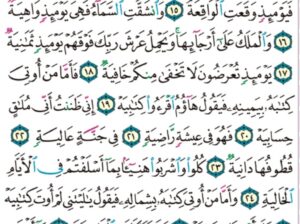 فَيَوْمَئِذٍ وَقَعَتِ ٱلْوَاقِعَةُ ١٥ وَٱنشَقَّتِ ٱلسَّمَآءُ فَهِىَ يَوْمَئِذٍ وَاهِيَةٌ
١٦ وَٱلْمَلَكُ عَلَىٰٓ أَرْجَآئِهَا وَيَحْمِلُ عَرْشَ رَبِّكَ فَوْقَهُمْ يَوْمَئِذٍ ثَمَٰنِيَةٌ
١٧ يَوْمَئِذٍ تُعْرَضُونَ لَا تَخْفَىٰ مِنكُمْ خَافِيَةٌ ١٨ فَأَمَّا مَنْ أُوتِىَ
كِتَٰبَهُۥ بِيَمِينِهِۦ فَيَقُولُ هَآؤُمُ ٱقْرَءُوا۟ كِتَٰبِيَهْ ١٩ إِنِّى ظَنَنتُ أَنِّى مُلَٰقٍ
حِسَابِيَهْ ٢٠ فَهُوَ فِى عِيشَةٍ رَّاضِيَةٍ ٢١ فِى جَنَّةٍ عَالِيَةٍ ٢٢
قُطُوفُهَا دَانِيَةٌ ٢٣ كُلُوا۟ وَٱشْرَبُوا۟ هَنِيٓـًٔۢا بِمَآ أَسْلَفْتُمْ فِى ٱلْأَيَّامِ
ٱلْخَالِيَةِ ٢٤ وَأَمَّا مَنْ أُوتِىَ كِتَٰبَهُۥ بِشِمَالِهِۦ فَيَقُولُ يَٰلَيْتَنِى لَمْ أُوتَ كِتَٰبِيَهْ